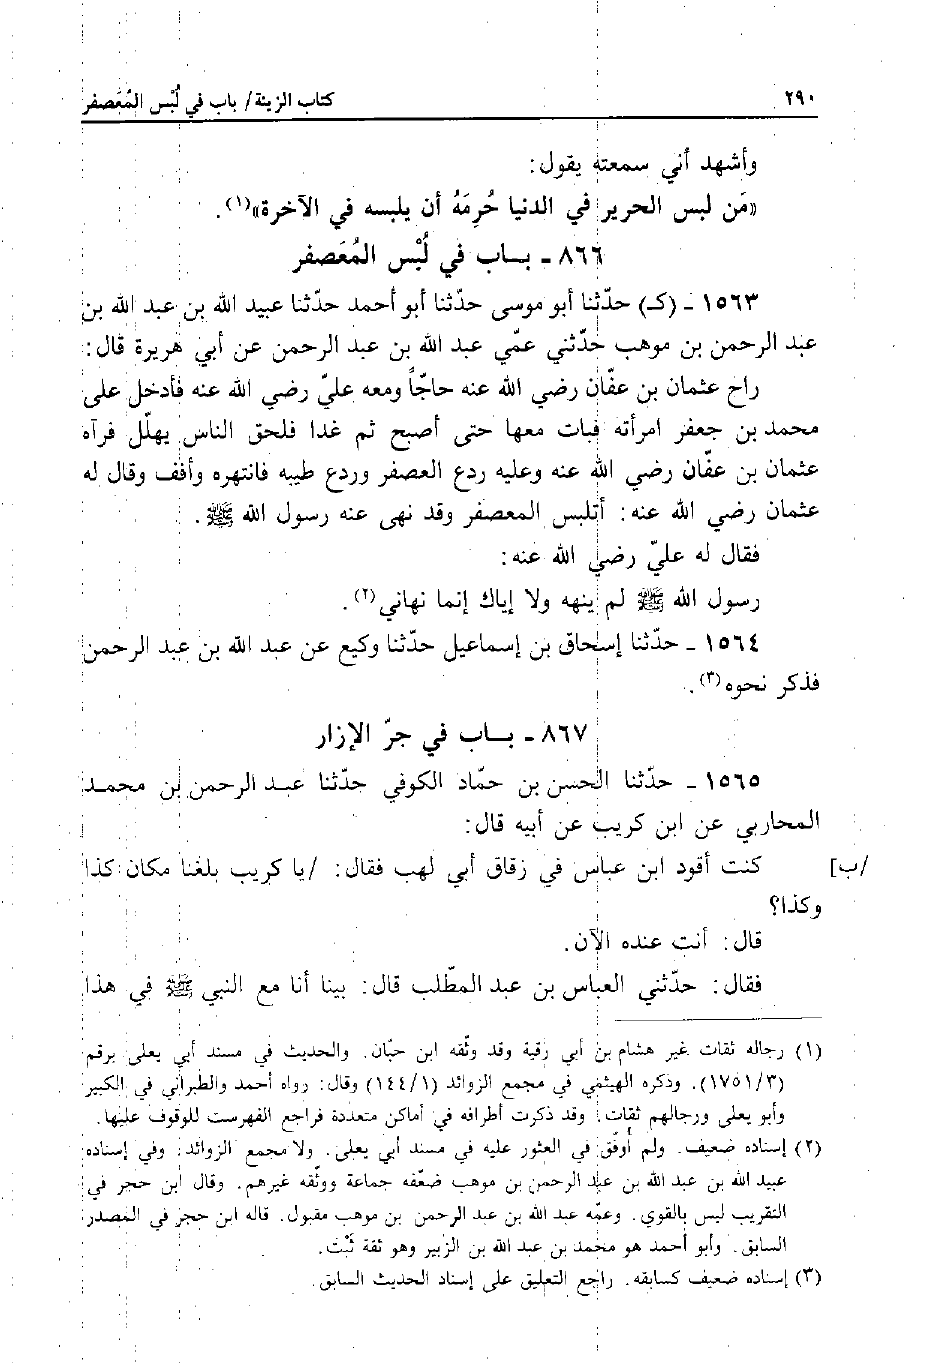 ٢٩٠ كتاب الزينة/ باب في لُبْس المُعَصفر
وأشهد أني سمعته يقول:
«مَن لبس الحرير في الدنيا حُرِمَهُ أن يلبسه في الآخرة»(١).
٨٦٦ - بـاب في لُبْس المُعَصفر
١٥٦٣ - (كـ) حدّثنا أبو موسى حدّثنا أبو أحمد حدّثنا عبيد الله بن عبد الله بن
عبد الرحمن بن موهب حدّثني عمّي عبد الله بن عبد الرحمن عن أبي هريرة قال:
راح عثمان بن عفّان رضي الله عنه حاجّاً ومعه عليّ رضي الله عنه فأدخل على
محمد بن جعفر امرأته فبات معها حتى أصبح ثم غدا فلحق الناس يهلّل فرآه
عثمان بن عفّان رضي الله عنه وعليه ردع العصفر وردع طيبه فانتهره وأفف وقال له
عثمان رضي الله عنه: أتلبس المعصفر وقد نهى عنه رسول الله ﷺ.
فقال له عليّ رضي الله عنه:
رسول الله ﷺ لم ينهه ولا إياك إنما نهاني(٢).
١٥٦٤ - حدّثنا إسحاق بن إسماعيل حدّثنا وكيع عن عبد الله بن عبد الرحمن
فذكر نحوه(٣).
٨٦٧ - بـاب في جرّ الإزار
١٥٦٥ - حدّثنا الحسن بن حمّاد الكوفي حدّثنا عبـد الرحمن بن محمـد
المحاربي عن ابن كريب عن أبيه قال:
/ب] كنت أقود ابن عباس في زقاق أبي لهب فقال: /يا كريب بلغنا مكان كذا
وكذا؟
قال: أنت عنده الآن.
فقال: حدّثني العباس بن عبد المطّلب قال: بينا أنا مع النبي ﷺ في هذا
(١) رجاله ثقات غير هشام بن أبي رقية وقد وثّقه ابن حبّان. والحديث في مسند أبي يعلى برقم
(١٧٥١/٣). وذكره الهيثمي في مجمع الزوائد (١٤٤/١) وقال: رواه أحمد والطبراني في الكبير
وأبو يعلى ورجالهم ثقات. وقد ذكرت أطرافه في أماكن متعددة فراجع الفهرست للوقوف عليها.
(٢) إسناده ضعيف. ولم أوفّق في العثور عليه في مسند أبي يعلى. ولا مجمع الزوائد: وفي إسناده
عبيد الله بن عبد الله بن عبد الرحمن بن موهب ضعّفه جماعة ووثّقه غيرهم. وقال ابن حجر في
التقريب ليس بالقوي. وعمّه عبد الله بن عبد الرحمن بن موهب مقبول. قاله ابن حجر في المصدر
السابق. وأبو أحمد هو محمد بن عبد الله بن الزبير وهو ثقة ثَبْت.
(٣) إسناده ضعيف كسابقه. راجع التعليق على إسناد الحديث السابق.